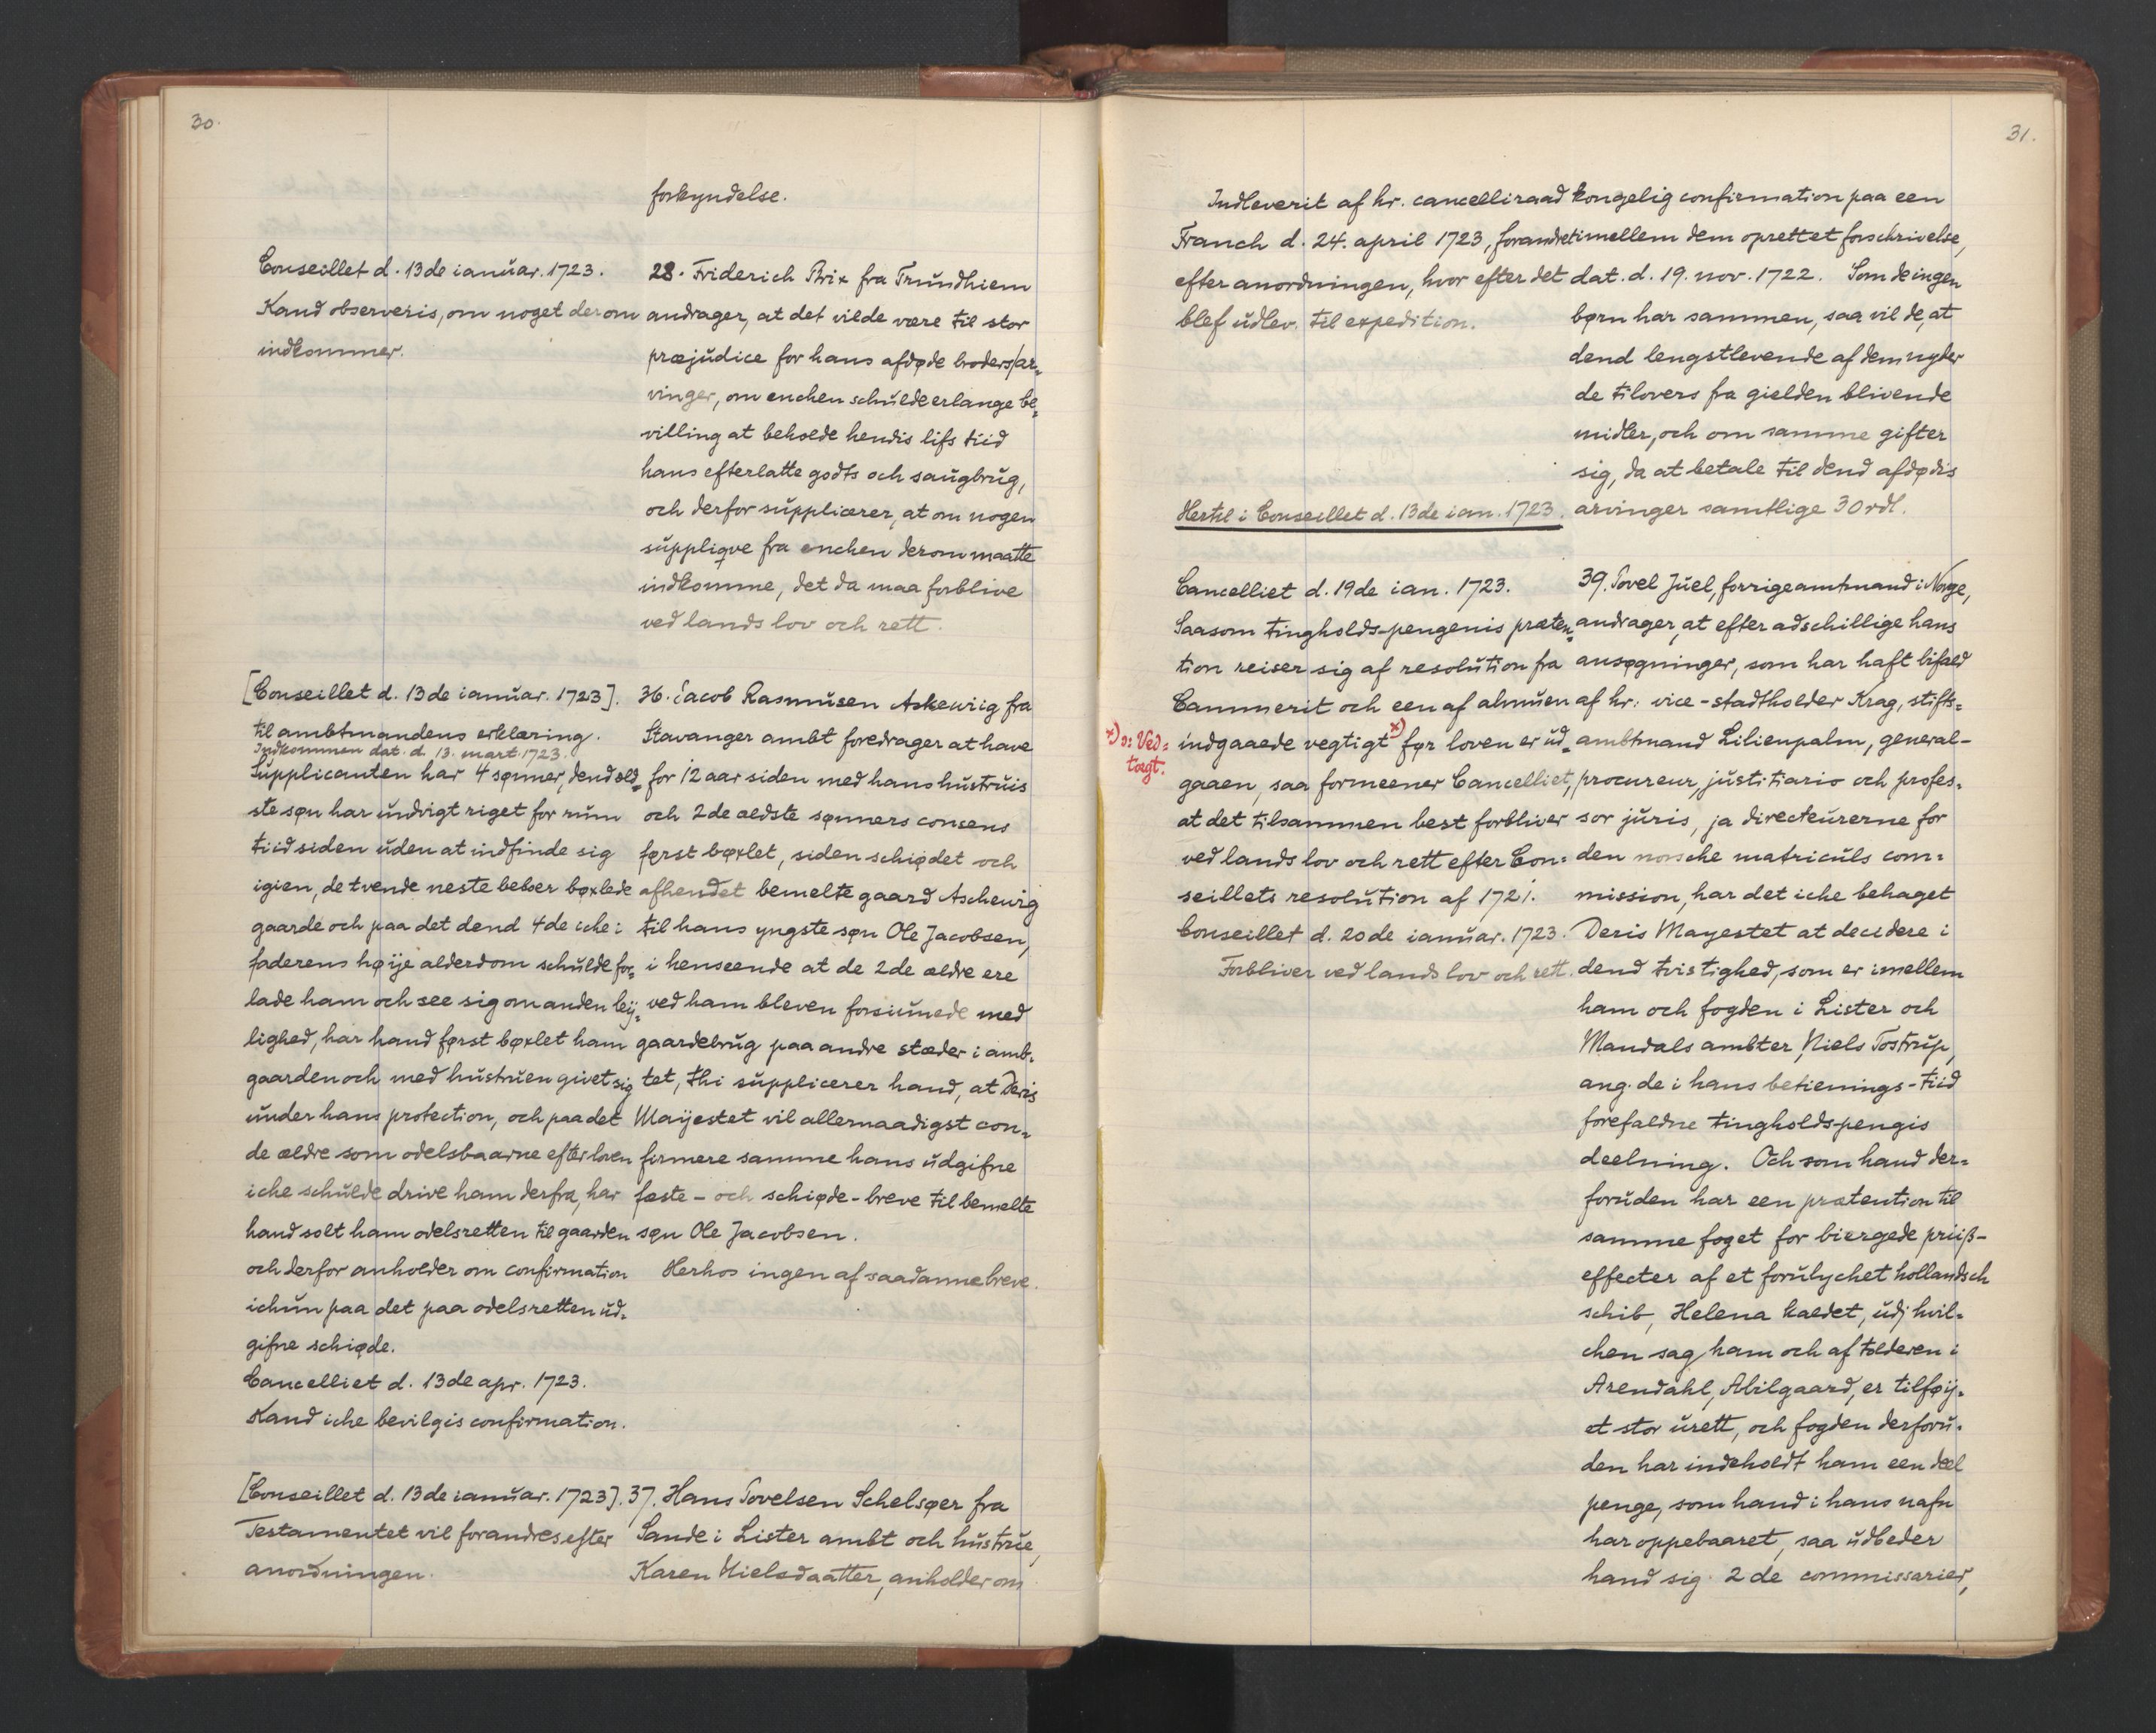 30.
forkyndelse.
Conseillet d. 13de ianuar. 1723.
Kand observeris, om noget derom
indkommer.
28. Friderich Brix fra Trundhiem
andrager, at det vilde være til stor
præjudice for hans afdøde broders ar-
vinger, om enchen schulde erlange be-
villing at beholde hendis lifs tiid
hans efterlatte godts och saugbrug,
och derfor supplicerer, at om nogen
suppliqve fra enchen derom maatte
indkomme, det da maa forblive
ved lands lov och rett.
[Conseillet d. 13de ianuar. 1723].
til ambtmandens erklæring.
Indkommen dat. d. 13. mart. 1723.
Supplicanten har 4 sønner, dend æld-
ste søn har undvigt riget for rum
tiid siden uden at indfinde sig
igien, de tvende neste beboer bøxlede
gaarde och paa det dend 4de iche i
faderens høije alderdom schulde for-
lade ham och see sig om anden leij-
lighed, har hand først bøxlet ham
gaarden och med hustruen givet sig
under hans protection, och paa det
de ældre som odelsbaarne efter loven
iche schulde drive ham derfra, har
hand solt ham odelsretten til gaarden
och derfor anholder om confirmation
ichun paa det paa odelsretten ud-
gifne schiøde.
Cancelliet d. 13de apr. 1723.
Kand iche bevilgis confirmation.
36. Jacob Rasmusen Askewiig fra
Stavanger ambt foredrager at have
for 12 aar siden med hans hustruis
och 2de ældste sønners consens
først bøxlet, siden schiødet och
afhendet bemelte gaard Aschevig
til hans yngste søn Ole Jacobsen,
i henseende at de 2de ældre ere
ved ham bleven forsiunede med
gaardebrug paa andre stæder i amb-
tet, thi supplicerer hand, at Deris
Maijestet vil allernaadigst con-
firmere samme hans udgifne
fæste- och schiøde-breve til bemelte
søn Ole Jacobsen.
Herhos ingen af saadanne breve.
[Conseillet d. 13de ianuar. 1723].
Testamentet vil forandres efter
anordningen.
37. Hans Povelsen Schelsøer fra
Sande i Lister ambt och hustrue,
Karen Nielsdaatter, anholder om
31.
Indleverit af hr. cancelliraad
Franch d. 24. april 1723, forandret
efter anordningen, hvor efter det
blef udlev. til expedition.
Hertil i Conseillet d. 13de ian. 1723.
kongelig confirmation paa een
imellem dem oprettet forschrivelse,
dat. d. 19. nov. 1722. Som de ingen
børn har sammen, saa vil de, at
dend lengstlevende af dem nyder
de tilovers fra gielden blivende
midler, och om samme gifter
sig, da at betale til dend afdødis
arvinger samtlige 30 rdl.
Cancelliet d. 19de ian. 1723.
Saasom tingholds-pengenis præten-
tion reiser sig af resolution fra
Cammerit och een af almuen
indgaaede vegtigt x) før loven er ud-
gaaen, saa formeener Cancelliet,
at det tilsammen best forbliver
ved lands lov och rett efter Con-
seillets resolution af 1721.
Conseillet d. 20de ianuar. 1723.
Forbliver ved lands lov och rett.
x) ɔ: Ved-
tægt.
39. Povel Juel, forrige amtmand i Norge,
andrager, at efter adschillige hans
ansøgninger, som har haft bifald
af hr: vice-stadtholder Krag, stifts-
ambtmand Lilienpalm, general-
procureur, justitiario och profes-
sor juris, ja directeurerne for
den norsche matriculs com-
mission, har det iche behaget
Deris Mayestet at decidere i
dend tvistighed, som er imellem
ham och fogden i Lister och
Mandals ambter, Niels Tostrup,
ang. de i hans betienings-tiid
forefaldne tingholdspengis
deelning. Och som hand der-
foruden har een prætention til
samme foget for biergede priiß-
effecter af et forulychet hollandsch
schib, Helena kaldet, udj hvil-
chen sag ham och af tolderen i
Arendahl, Abilgaard, er tilføij-
et stor urett, och fogden derforu-
den har indeholdt ham een deel
penge, som hand i hans nafn
har oppebaaret, saa udbeder
hand sig 2de commissarier,